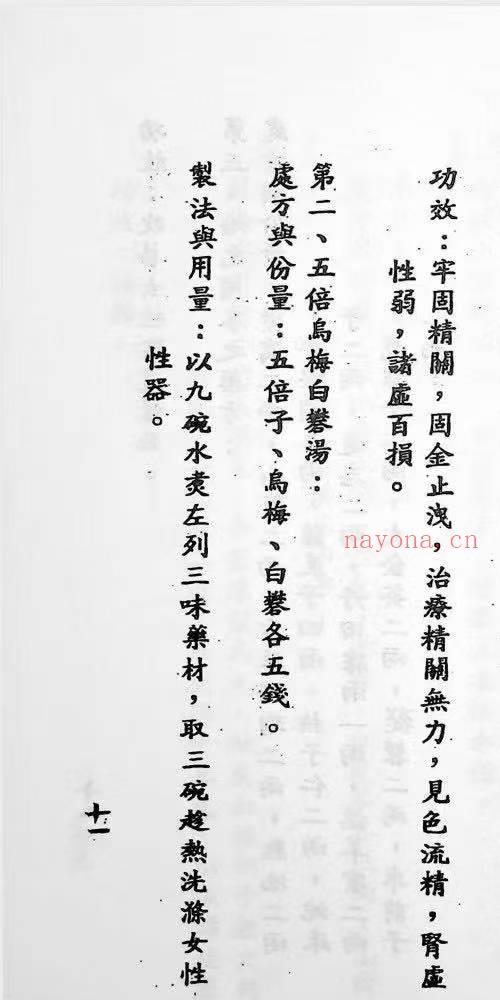 功效：牢固精關，固金止洩，治療精關無力，見色流精，腎虛
性弱，諸虛百損。
第二、五倍烏梅白礬湯：
處方與份量：五倍子、烏梅、白礬各五錢。
製法與用量：以九碗水煑左列三味藥材，取三碗趁熱洗滌女性
性器。
十一
nayona.cn